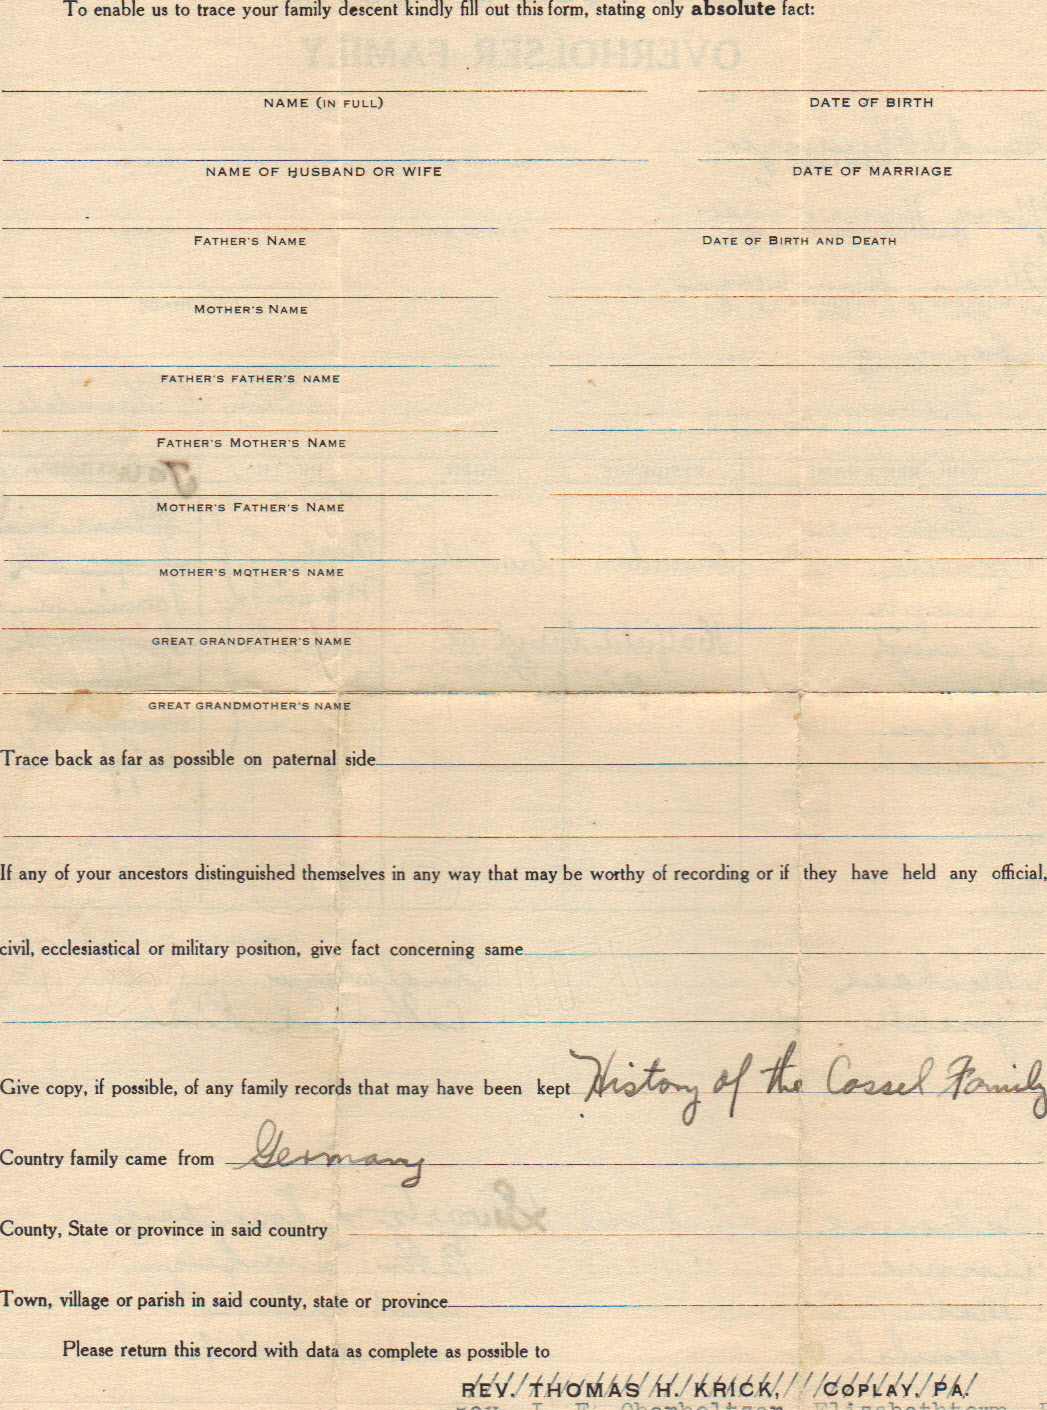 To enable us to trace your family descent kindly fill out this form, stating only absolute fact:
OVERHOLSER FAMILY
NAME (IN FULL) DATE OF BIRTH
NAME OF HUSBAND OR WIFE DATE OF MARRIAGE
FATHER'S NAME DATE OF BIRTH AND DEATH
MOTHER'S NAME
FATHER'S FATHER'S NAME
FATHER'S MOTHER'S NAME
MOTHER'S FATHER'S NAME
MOTHER'S MOTHER'S NAME
GREAT GRANDFATHER'S NAME
GREAT GRANDMOTHER'S NAME
Trace back as far as possible on paternal side
If any of your ancestors distinguished themselves in any way that may be worthy of recording or if they have held any official,
civil, ecclesiastical or military position, give fact concerning same
Give copy, if possible, of any family records that may have been kept History of the Cassel Family
Country family came from Germany
County, State or province in said country
Town, village or parish in said county, state or province
Please return this record with data as complete as possible to
REV. THOMAS H. KRICK, COPLAY, PA.